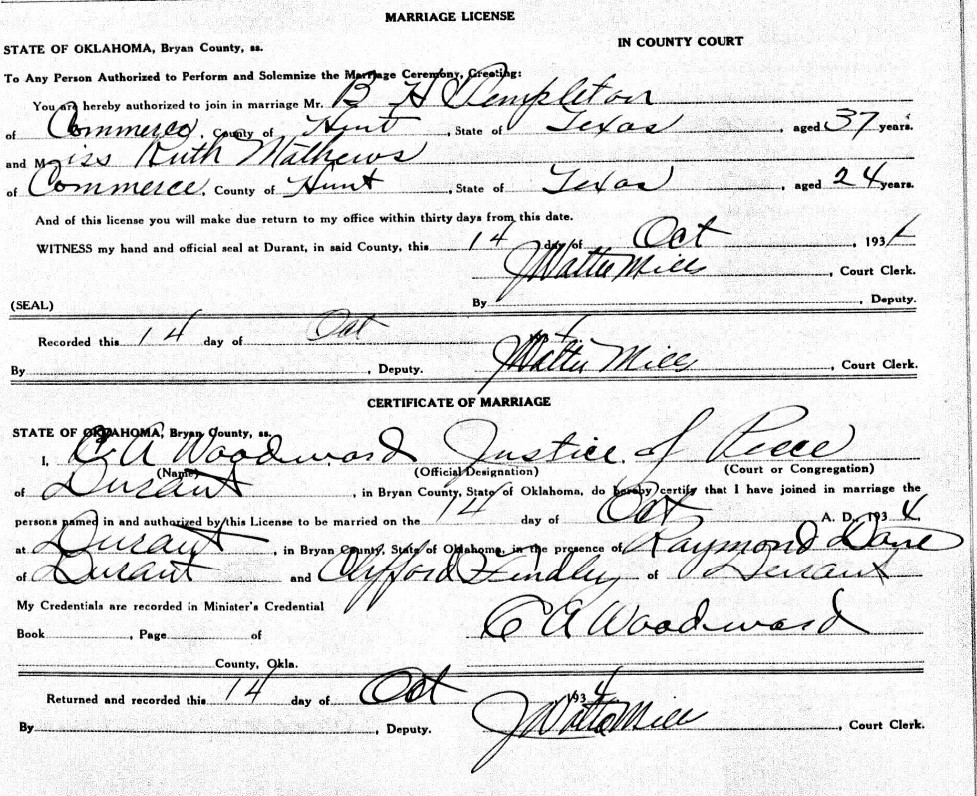 MARRIAGE LICENSE
STATE OF OKLAHOMA, Bryan County, ss. IN COUNTY COURT
To Any Person Authorized to Perform and Solemnize the Marriage Ceremony, Greeting:
You are hereby authorized to join in marriage Mr. B H Templeton
of Commerce, County of Hunt, State of Texas, aged 37 years.
and Miss Ruth Mathews
of Commerce, County of Hunt, State of Texas, aged 24 years.
And of this license you will make due return to my office within thirty days from this date.
WITNESS my hand and official seal at Durant, in said County, this 14 day of Oct, 193
J Walter Mills, Court Clerk.
(SEAL) By , Deputy.
Recorded this 14 day of Oct 1934
By , Deputy. J Walter Mills, Court Clerk.
CERTIFICATE OF MARRIAGE
STATE OF OKLAHOMA, Bryan County, ss.
I, C A Woodward Justice of Peece
(Name) (Official Designation) (Court or Congregation)
of Durant, in Bryan County, State of Oklahoma, do hereby certify that I have joined in marriage the
persons named in and authorized by this License to be married on the 14 day of Oct A. D. 1934.
at Durant, in Bryan County, State of Oklahoma, in the presence of Raymond Dane
of Durant and Clifford Findley of Durant
My Credentials are recorded in Minister's Credential
Book , Page of C A Woodward
County, Okla.
Returned and recorded this 14 day of Oct 1934
By , Deputy. J Walter Mills, Court Clerk.